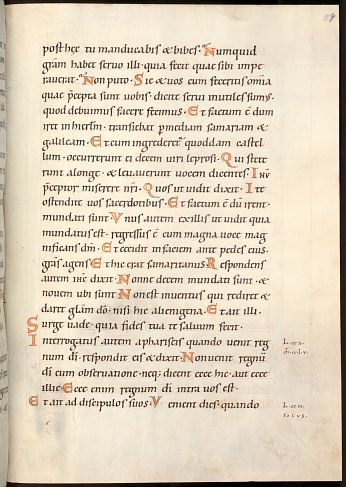 posthęc tu manducabis & bibes. Numquid
grām habet seruo illi. quia fecit quae sibi impe
rauerat. Non puto. Sic & uos cum feceritis om̄ia
quae p̄cepta sunt uobis. dicite serui inutiles sumꝰ.
quod debuimus facere fecimus. Et factum ē dum
iret in hierłm. transiebat p mediam samariam &
galileam. Et cum ingrederet' quoddam castel
lum. occurrerunt ei decem uiri leprosi. Qui stete
runt alonge. & leuauerunt uocem dicentes. Ihū
p̄ceptor miserere nr̄i. Quos ut uidit dixit. Ite
ostendite uos sacerdotibus. Et factum ē dū irent.
mundati sunt. Vnus autem ex illis ut uidit quia
mundatus est. regressus ē cum magna uoce mag
nificans dm̄. Et cecidit in faciem ante pedes eius.
grās agens. Et hic erat samaritanus. Respondens
autem ihc̄ dixit. Nonne decem mundati sunt. &
nouem ubi sunt. Non est inuentus qui rediret &
daret glām dō. nisi hic alienigena. Et ait illi.
Surge uade. quia fides tua te saluum fecit.
Interrogatus autem a phariseis quando uenit reg
num dī. respondit eis & dixit. Non uenit regnū
dī cum obseruatione. neq; dicent ecce hic. aut ecce
illic. Ecce enim regnum dī intra uos est.
Et ait ad discipulos suos. Venient dies. quando